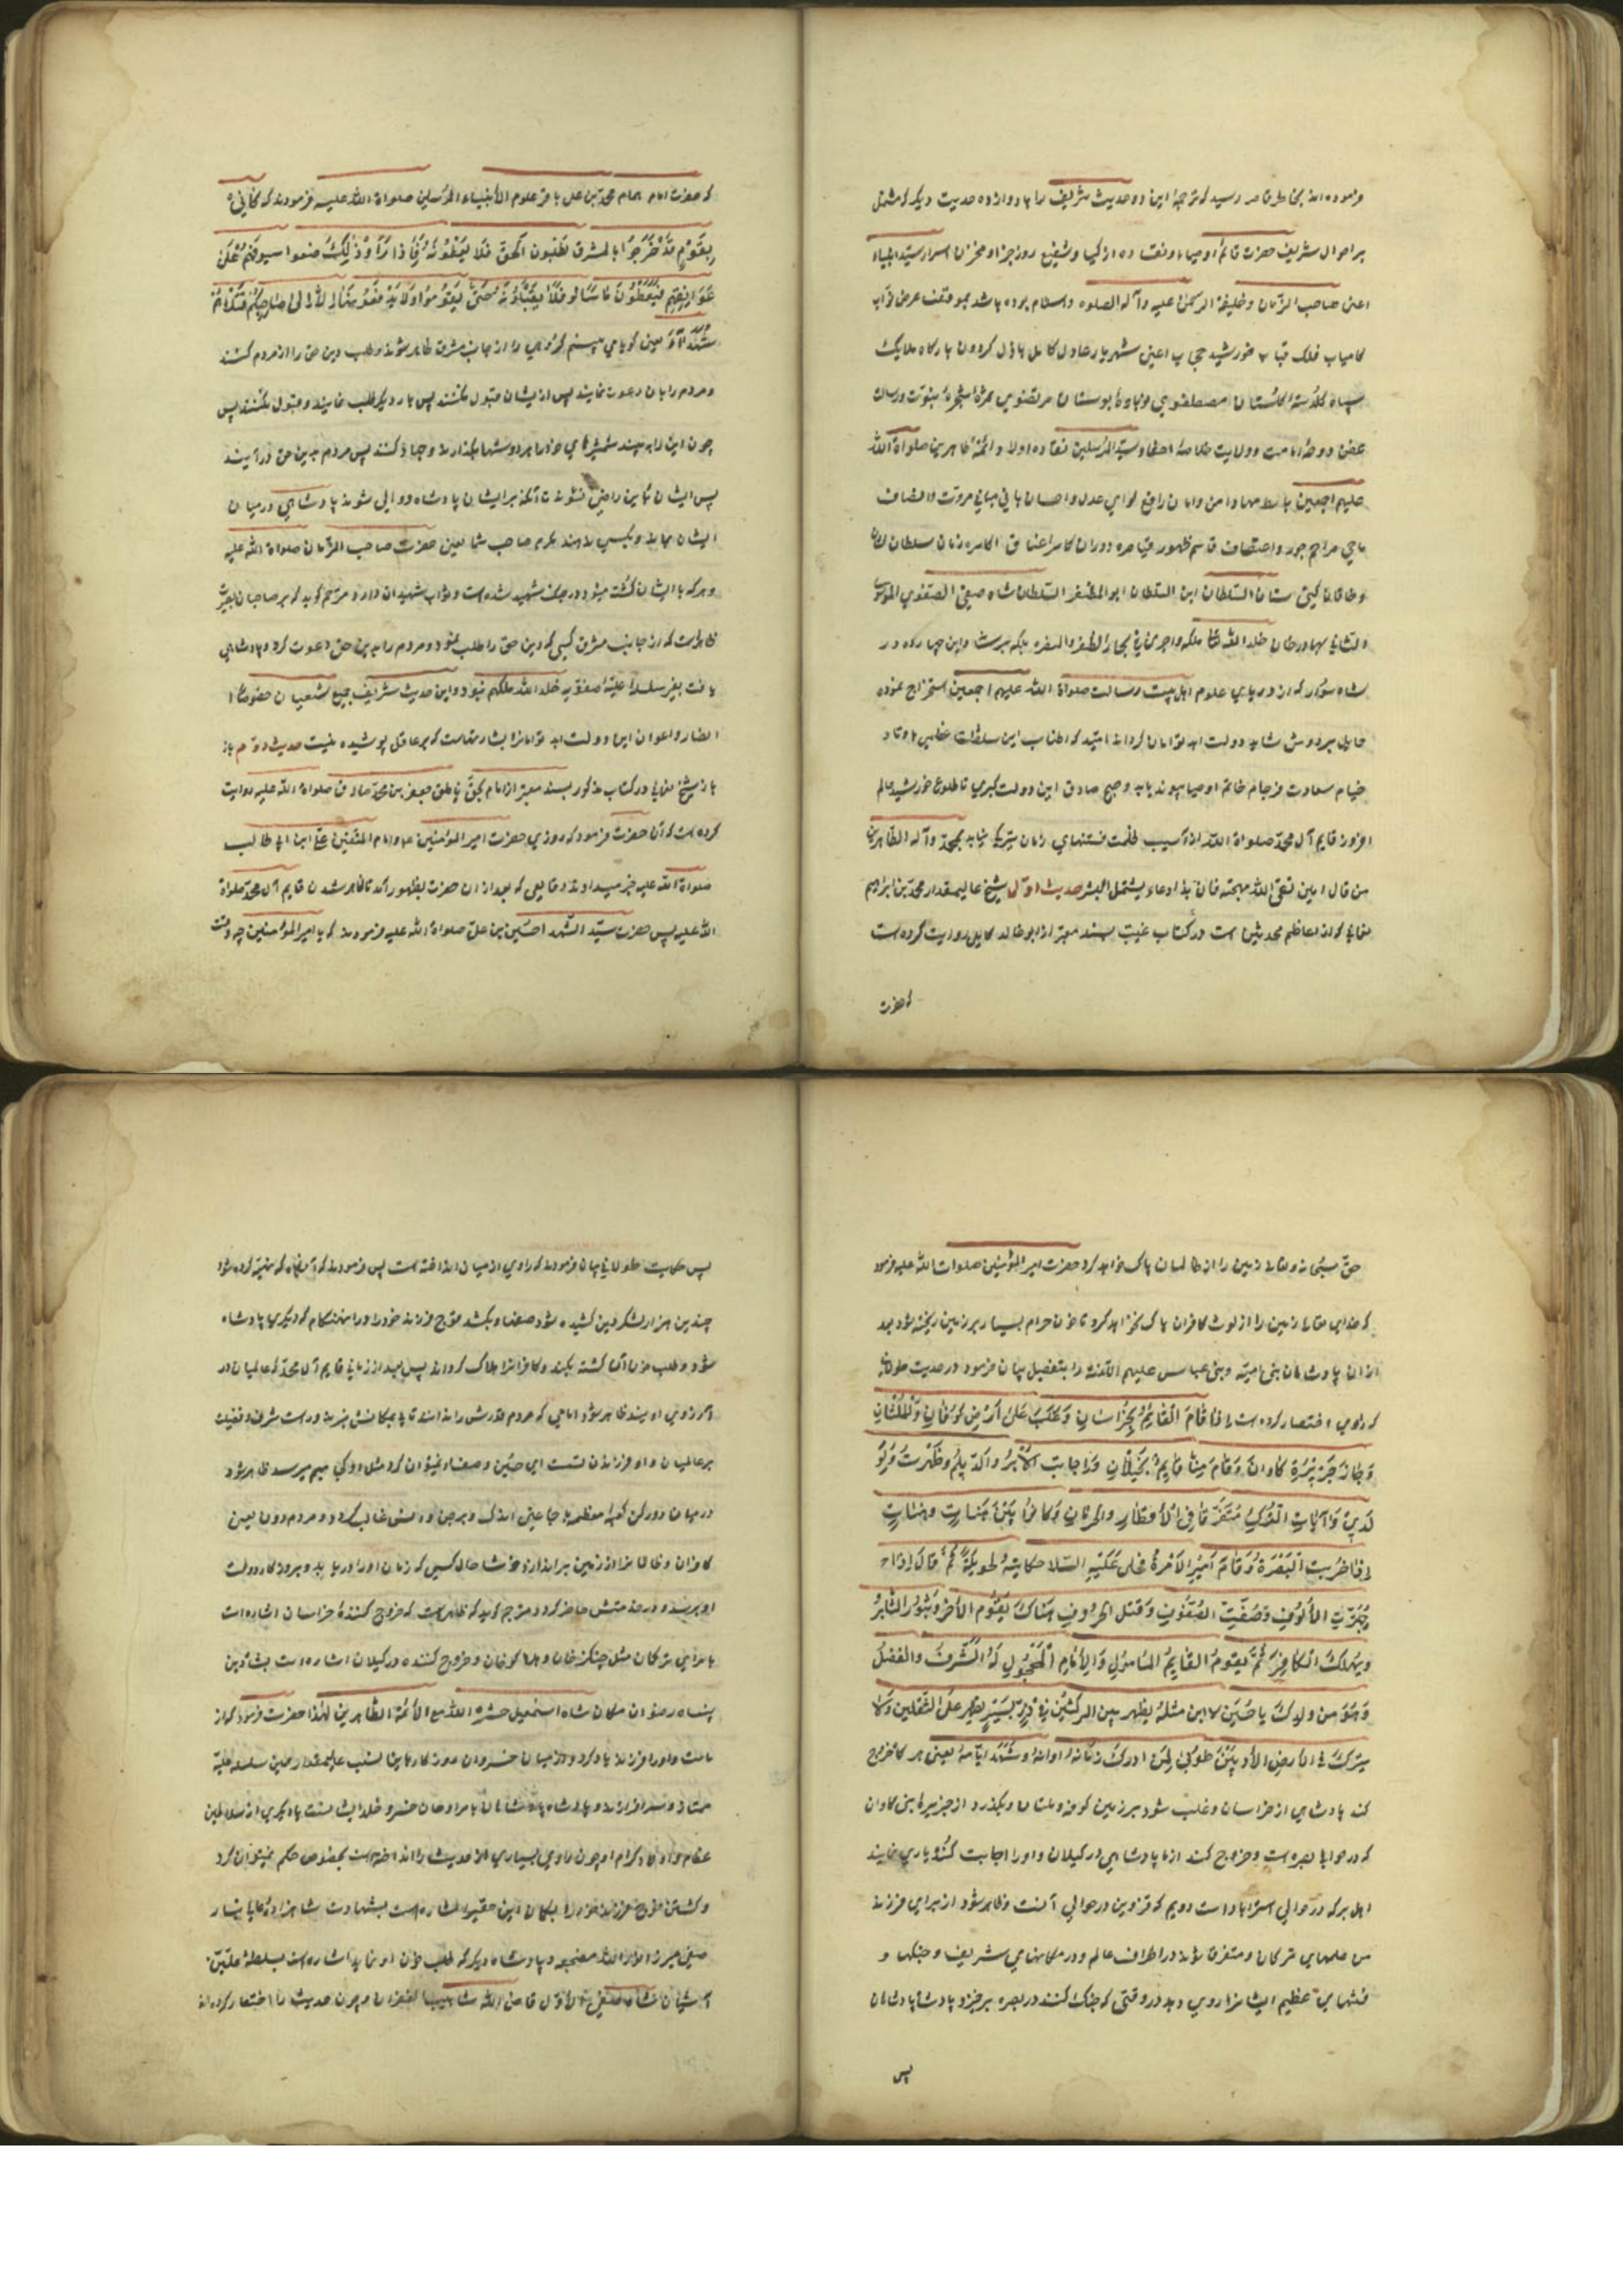 فرموده‌اند بخاطر قاصر رسید که ترجمهٔ این دو حدیث شریف را با دوازده حدیث دیگر که مشتمل
بر احوال شریف حضرت قائم اوصیاء و نقاده ازکیا و شفیع روز جزا و مخزن اسرار سید انبیاء
اعنی صاحب الزمان و خلیفة الرحمن علیه وآله الصلوه والسلام بوده باشد بموقف عرض نواب
کامیاب فلک قباب خورشید حجاب اعنی شهریار عادل کامل باذل کردون بارکاه ملایک
سپاه کلدستهٔ کلستان مصطفوی و نوباوهٔ بوستان مرتضوی ثمرهٔ شجرهٔ نبوت و رسالت
غصن دوحهٔ امامت و ولایت خلاصهٔ احفاد سید المرسلین نقاده اولاد ائمهٔ طاهرین صلواة الله
علیهم اجمعین باسط مهاد امن و امان رافع لوای عدل و احسان بانی مبانی مروت و انصاف
ماحی مراسم جور و اعتساف قاسم ظهور قیاصره دوران کاسر اعناق اکاسره زمان سلطان
و خاقان کیتی ستان السلطان ابن السلطان ابو المظفر السلطان شاه صفی الصفوی الموسوی
الثانی بهادرخان خلد الله ملکه و اجری فی بحار الظفر والنصره فلکه برساند و این چهارده در
شاه‌وار که از دریای علوم اهل بیت رسالت صلواة الله علیهم اجمعین استخراج نموده
حایل بر دوش شاهد دولت ابد توامان کرداند امید که اطناب این سلطنت عظمی باوتاد
خیام سعادت فرجام خاتم اوصیا پیوند یابد و صبح صادق این دولت کبری تا طلوع خورشید عالم
افروز قایم آل محمد صلواة الله از آسیب ظلمت فتنهای زمان تیرکی نیابد بمحمد وآله الطاهرین
من قال امین تقی الله مهجته فان هذا دعاء یشتمل البشر حدیث اول شیخ عالیمقدار محمد بن ابراهیم
نعمانی که از اعاظم محدثین است در کتاب غیبت بسند معتبر از ابو خالد کابلی روایت کرده است
که حضرت
که حضرت امام همام محمد بن علی باقر علوم الأنبیاء والمرسلین صلواة الله علیه فرمودند که کأنی
بِقَوْمٍ قَدْ خَرَجُوا بالمشرق یطلبون الحق فلا یعطونه فاذا رَأَوْ ذٰلِکَ وضعوا سیوفهم عَلی
عَوَاتِقِهِم فیُعْطَوْنَ ما سألو فلا یقبلونه حتّی یَقُومُوا ولا یدفعونها إلّا إلی صاحبکم قتلاهم
شُهَدَاءَ یعنی کویا می‌بینم کروهی را از جانب مشرق ظاهر شوند و طلب دین حق را از مردم کنند
و مردم را بآن دعوت نمایند پس از ایشان قبول نکنند پس بار دیکر طلب نمایند و قبول نکنند پس
چون این را ببینند شمشیرهای خود را بر دوشها بکذارند و جهاد کنند پس مردم بدین حق درآیند
پس ایشان باین راضی نشوند تا آنکه بر ایشان پادشاه و والی شوند پادشاهی در میان
ایشان بماند و بکسی ندهند مکر بر صاحب شما یعنی حضرت صاحب الزمان صلواة الله علیه
و هرکه با ایشان کشته میشود در جنک شهید شده است و ثواب شهیدان دارد مترجم کوید که بر صاحبان بصیرت
ظاهرست که از جانب مشرق کسی که دین حق را طلب نمود و مردم را بدین حق دعوت کرد و پادشاهی
یافت بغیر سلسلهٔ علیهٔ صفویه خلد الله ملکهم نبود و این حدیث شریف جمیع شعیان خصوصاً
انصار و اعوان این دولت ابد توامانرا بشارتهاست که بر عاقل پوشیده نیست حدیث دویم باز
باز شیخ نعمانی در کتاب مذکور بسند معتبر از امام بحق ناطق جعفر بن محمد صادق صلواة الله علیه روایت
کرده است که آن حضرت فرمود که روزی حضرت امیر المؤمنین و امام المتقین علی ابن ابی طالب
صلواة الله علیه خبر میداد از وقایعی که بعد از ان حضرت بظهور آمد تا ظاهر شدن قایم آل محمد صلواة
الله علیه پس حضرت سید الشهدا حسین بن علی صلواة الله علیه فرمودند که یا امیر المؤمنین چه وقت
حق سبحانه و تعالی زمین را از ظالمان پاک خواهد کرد حضرت امیر المؤمنین صلوات الله علیه فرمود
که خدای تعالی زمین را از لوث کافران پاک نخواهد کرد تا خون حرام بسیار بر زمین ریخته شود بعد
از ان پادشاهان بنی امیه و بنی عباس علیهم اللعنه را بتفصیل بیان فرمود در حدیث طولانی
که راوی اختصار کرده است إذا قام القائم بخراسان و غلب علی أرض کوفان والملتان
و جاز جزیرة کاوان و قام منا قایم بکیلان و اجابت الآبر والدیلم و ظهرت
لولدی رایات الترک متفرقات فی الأقطار والحرمات و کانوا بین هنات و هنات
إذا خربت البصرة و قام أمیر الإمرة فحلی علیه السلام حکایة طویلة ثم قال إذا
جهزت الألوف و صفت الصفوف و قتل الخروف هناک یقوم الآخر و یثور الثایر
و یهلک الکافر ثم یقوم القایم المأمول والإمام المجهول له الشرف والفضل
و هو من ولدک یا حسین لا ابن مثله یظهر بین الرکنین فی دریسین یظهر علی الثقلین ولا
یترک فی الأرض الأدنین طوبی لمن ادرک زمانه و اوانه و شهد ایامه یعنی هر کاه خروج
کند پادشاهی از خراسان و غلب شود بر زمین کوفه و ملتان و بکذرد از جزیره بنی کاوان
که در حوالی بصره است و خروج کند از ما پادشاهی در کیلان و اورا اجابت کند و یاری نمایند
اهل برکه در حوالی استراباد است دویم که قزوین در حوالی آنست و ظاهر شود از برای فرزند
من علمهای ترکان و متفرق شوند در اطراف عالم و در مکانهای شریف و جنکها و
فتنهای عظیم ایشانرا روی دهد در وقتی که جنک کنند در بصره برخیزد پادشاه پادشاهان
پس
پس حکایت طولانی بیان فرمودند که راوی از میان انداخته است پس فرمودند که آنکاه که مهیا کرده شود
چندین هزار لشکر و صفها کشیده شود و بکشد قوچ فرزند خود را در آن هنکام که دیکری پادشاه
شود و طلب خون آن کشته بکند و کافرانرا هلاک کرداند پس بعد از زمانی قایم آل محمد که عالمیان در
آرزوی اویند ظاهر شود امامی که مردم قدرش را ندانند
بر عالمیان و او از فرزندان تست ای حسین
در میان دو رکن کعبهٔ معظمه با جماعتی اندک و بر جن و انس غالب کردد و مردم دون یعنی
کافران و ظالمانرا از زمین براندازد خوشا حال کسی که زمان اورا دریابد و بروزکار دولت
او برسد و در خدمتش حاضر کردد مترجم کوید که ظاهرست که خروج کنندهٔ خراسان اشاره است
بامرای ترکان مثل چنکیز خان و هلاکو خان و خروج کننده در کیلان اشاره است بشاه دین
پناه رضوان مکان شاه اسمعیل حشره الله مع الأئمة الطاهرین لهذا حضرت فرمود که از
ماست و اورا فرزند یاد کرد
ممتاز و سرافرازند و پادشاه پادشاهان
عظام و اولاد کرام او چون راوی بسیاری از حدیث را انداخته است بخصوص حکم نمیتوان کرد
و کشتن قوچ فرزند خود را بکمان این حقیر اشاره است بشهادت شاهزادهٔ عالیا تبار
صفی میرزا انار الله مضجعه و پادشاه دیکر که طلب خون او نماید اشاره است بسلطنهٔ علیین
آشیان شاه صفی الأول فاض الله شآبیب الغفران و چون حدیث را اختصار کرده‌اند